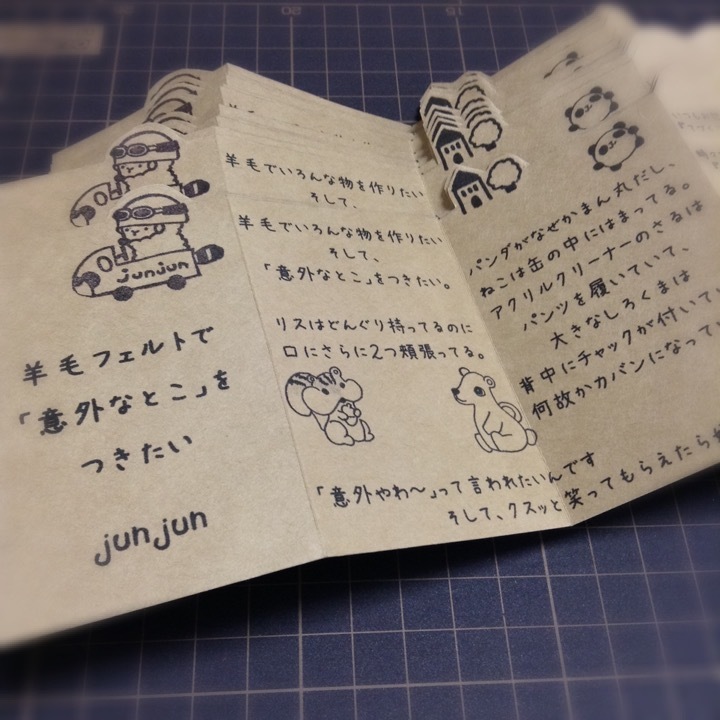 junjun
羊毛フェルトで
「意外なとこ」を
つきたい
junjun
羊毛でいろんな物を作りたい
そして、
羊毛でいろんな物を作りたい
そして、
「意外なとこ」をつきたい。
リスはどんぐり持ってるのに
口にさらに2つ頬張ってる。
「意外やわ〜」って言われたいんです
そして、クスッと笑ってもらえたら
パンダがなぜかまん丸だし、
ねこは缶の中にはまってる。
アクリルクリーナーのさるは
パンツを履いていて、
大きなしろくまは
背中にチャックが付いてい
何故かカバンになって
20
15